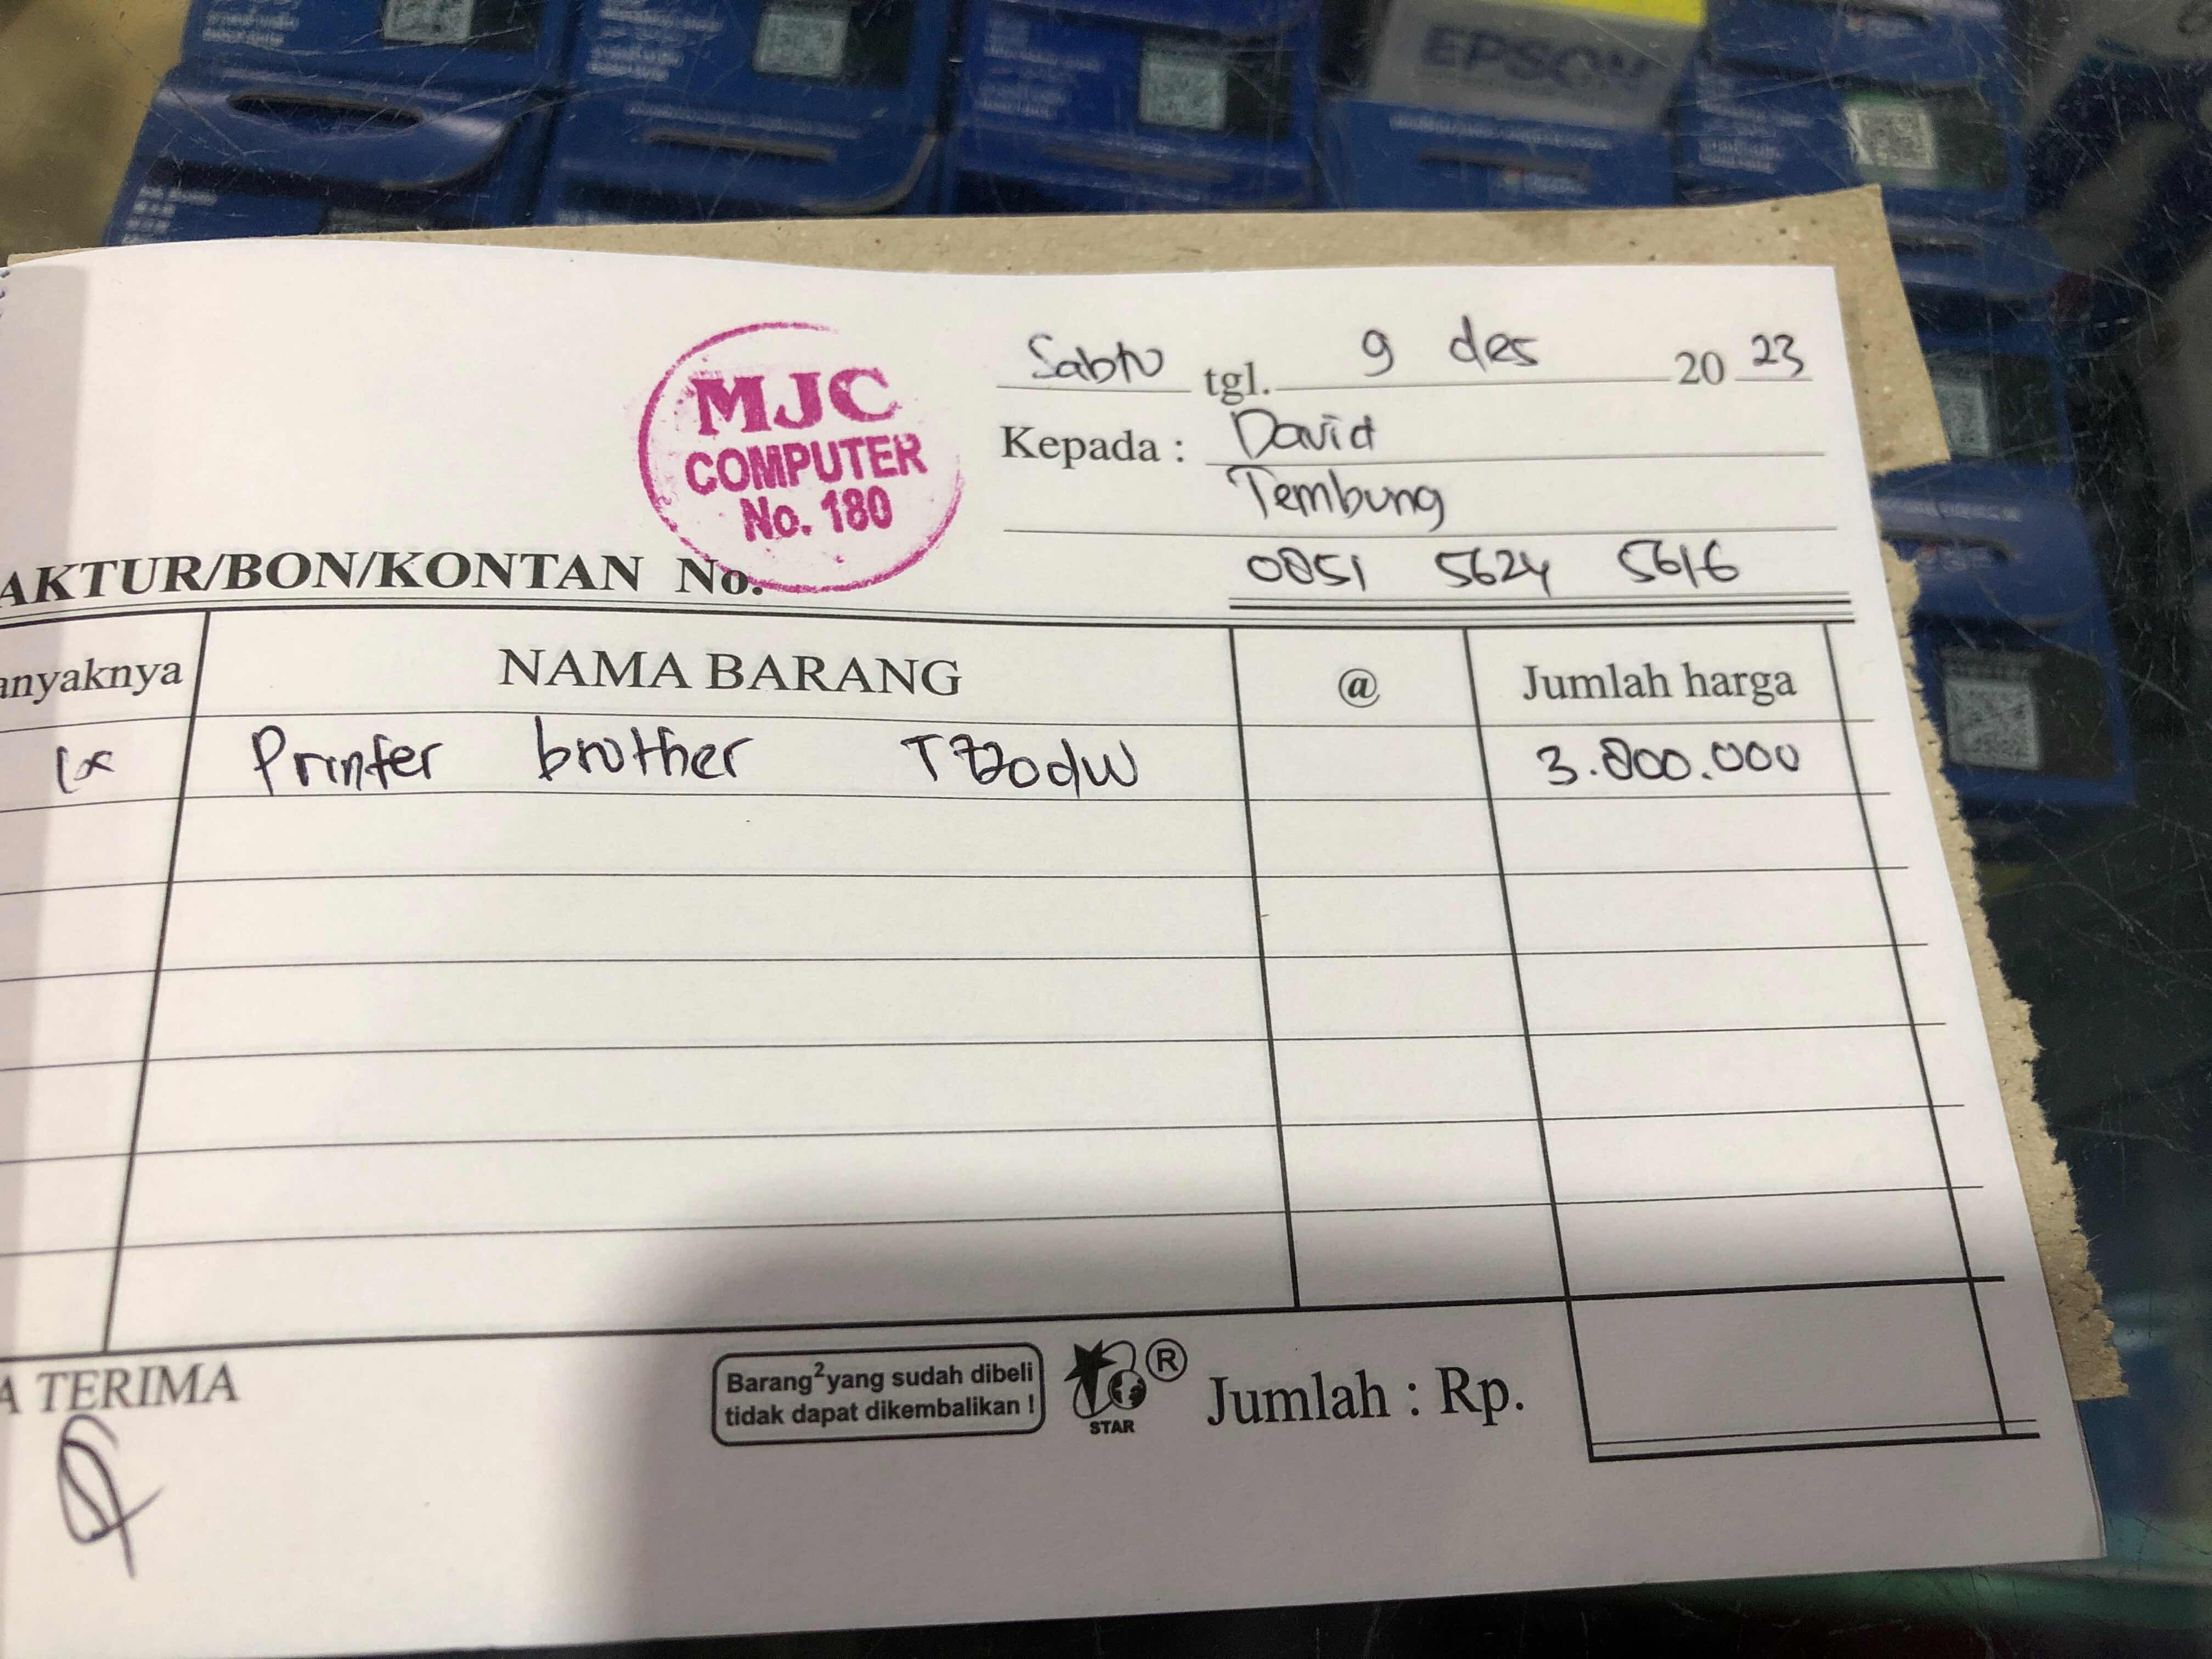 EPSON
MJC
COMPUTER
No. 180
Sabtu tgl. 9 des 20 23
Kepada : David
Tembung
0851 5624 5616
AKTUR/BON/KONTAN No.
anyaknya NAMA BARANG @ Jumlah harga
1x Printer brother T720dw 3.800.000
A TERIMA
Barang2 yang sudah dibeli
tidak dapat dikembalikan !
STAR
® Jumlah : Rp.